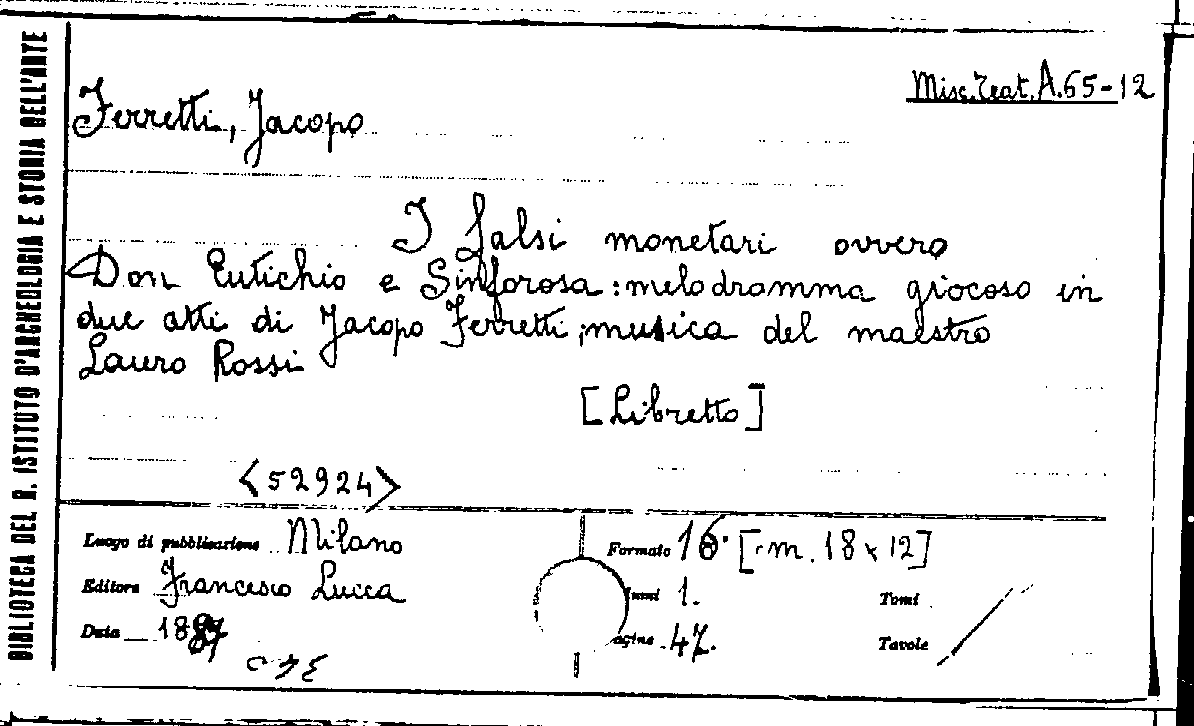 BIBLIOTECA DEL R. ISTITUTO D'ARCHEOLOGIA E STORIA DELL'ARTE
Misc. Teat. A. 65-12
Ferretti, Jacopo
I falsi monetari ovvero
Don Eutichio e Sinforosa: melodramma giocoso in
due atti di Jacopo Ferretti; musica del maestro
Lauro Rossi
[Libretto]
<52924>
Luogo di pubblicazione Milano
Formato 16° [cm. 18 x 12]
Editore Francesco Lucca
1.
Tomi
Data
47.
Tavole